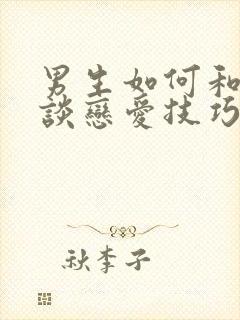 男生如何和
談戀愛技巧
秋李子